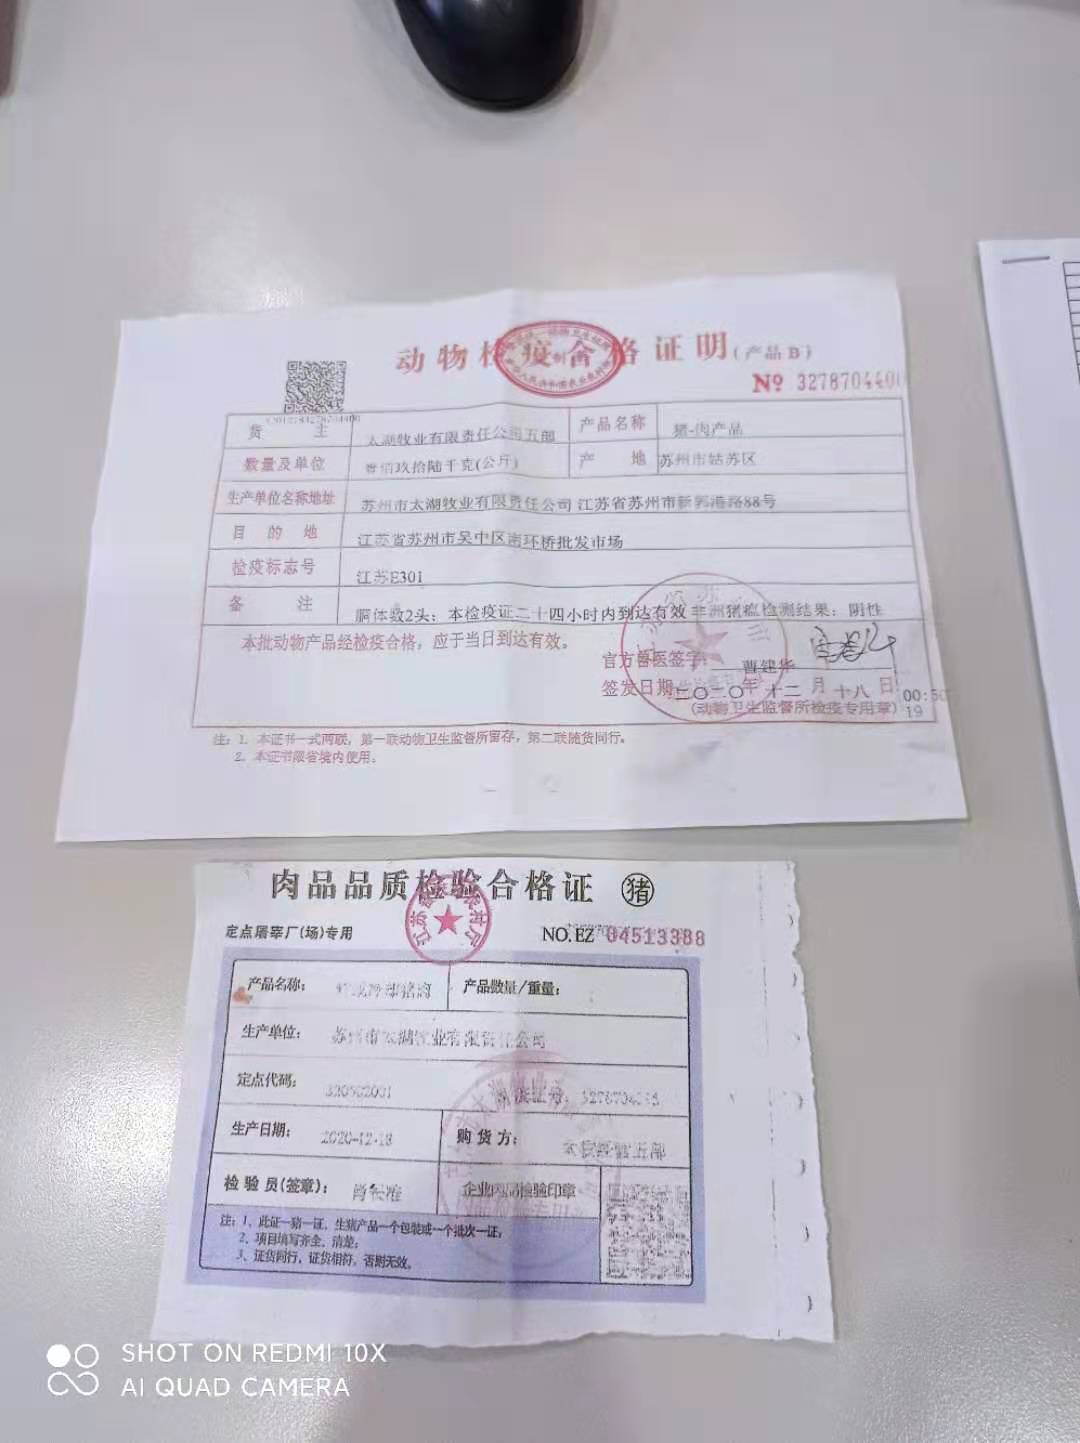 动物检疫合格证明(产品B)
№ 3278704400
货 主 太湖牧业有限责任公司五部 产品名称 猪-肉产品
数量及单位 壹佰玖拾陆千克(公斤) 产 地 苏州市姑苏区
生产单位名称地址 苏州市太湖牧业有限责任公司 江苏省苏州市新郭港路88号
目 的 地 江苏省苏州市吴中区南环桥批发市场
检疫标志号 江苏E301
备 注 胴体数2头; 本检疫证二十四小时内到达有效 非洲猪瘟检测结果: 阴性
本批动物产品经检疫合格，应于当日到达有效。
官方兽医签字: 曹建华
签发日期 二〇二〇年 十二 月 十八 日 00:50
(动物卫生监督所检疫专用章) 19
注: 1. 本证书一式两联, 第一联动物卫生监督所留存, 第二联随货同行。
2. 本证书限省境内使用。
肉品品质检验合格证 猪
江苏省农村厅
定点屠宰厂(场)专用 NO.EZ 04513388
产品名称: 产品数量/重量:
生产单位: 苏州市太湖牧业有限责任公司
定点代码:
生产日期: 2020-12-18 购 货 方:
检 验 员(签章): 肖长准 企业肉品检验印章
注: 1、此证一猪一证，生猪产品一个包装或一个批次一证;
2、项目填写齐全、清楚;
3、证货同行，证货相符，否则无效。
SHOT ON REDMI 10X
AI QUAD CAMERA